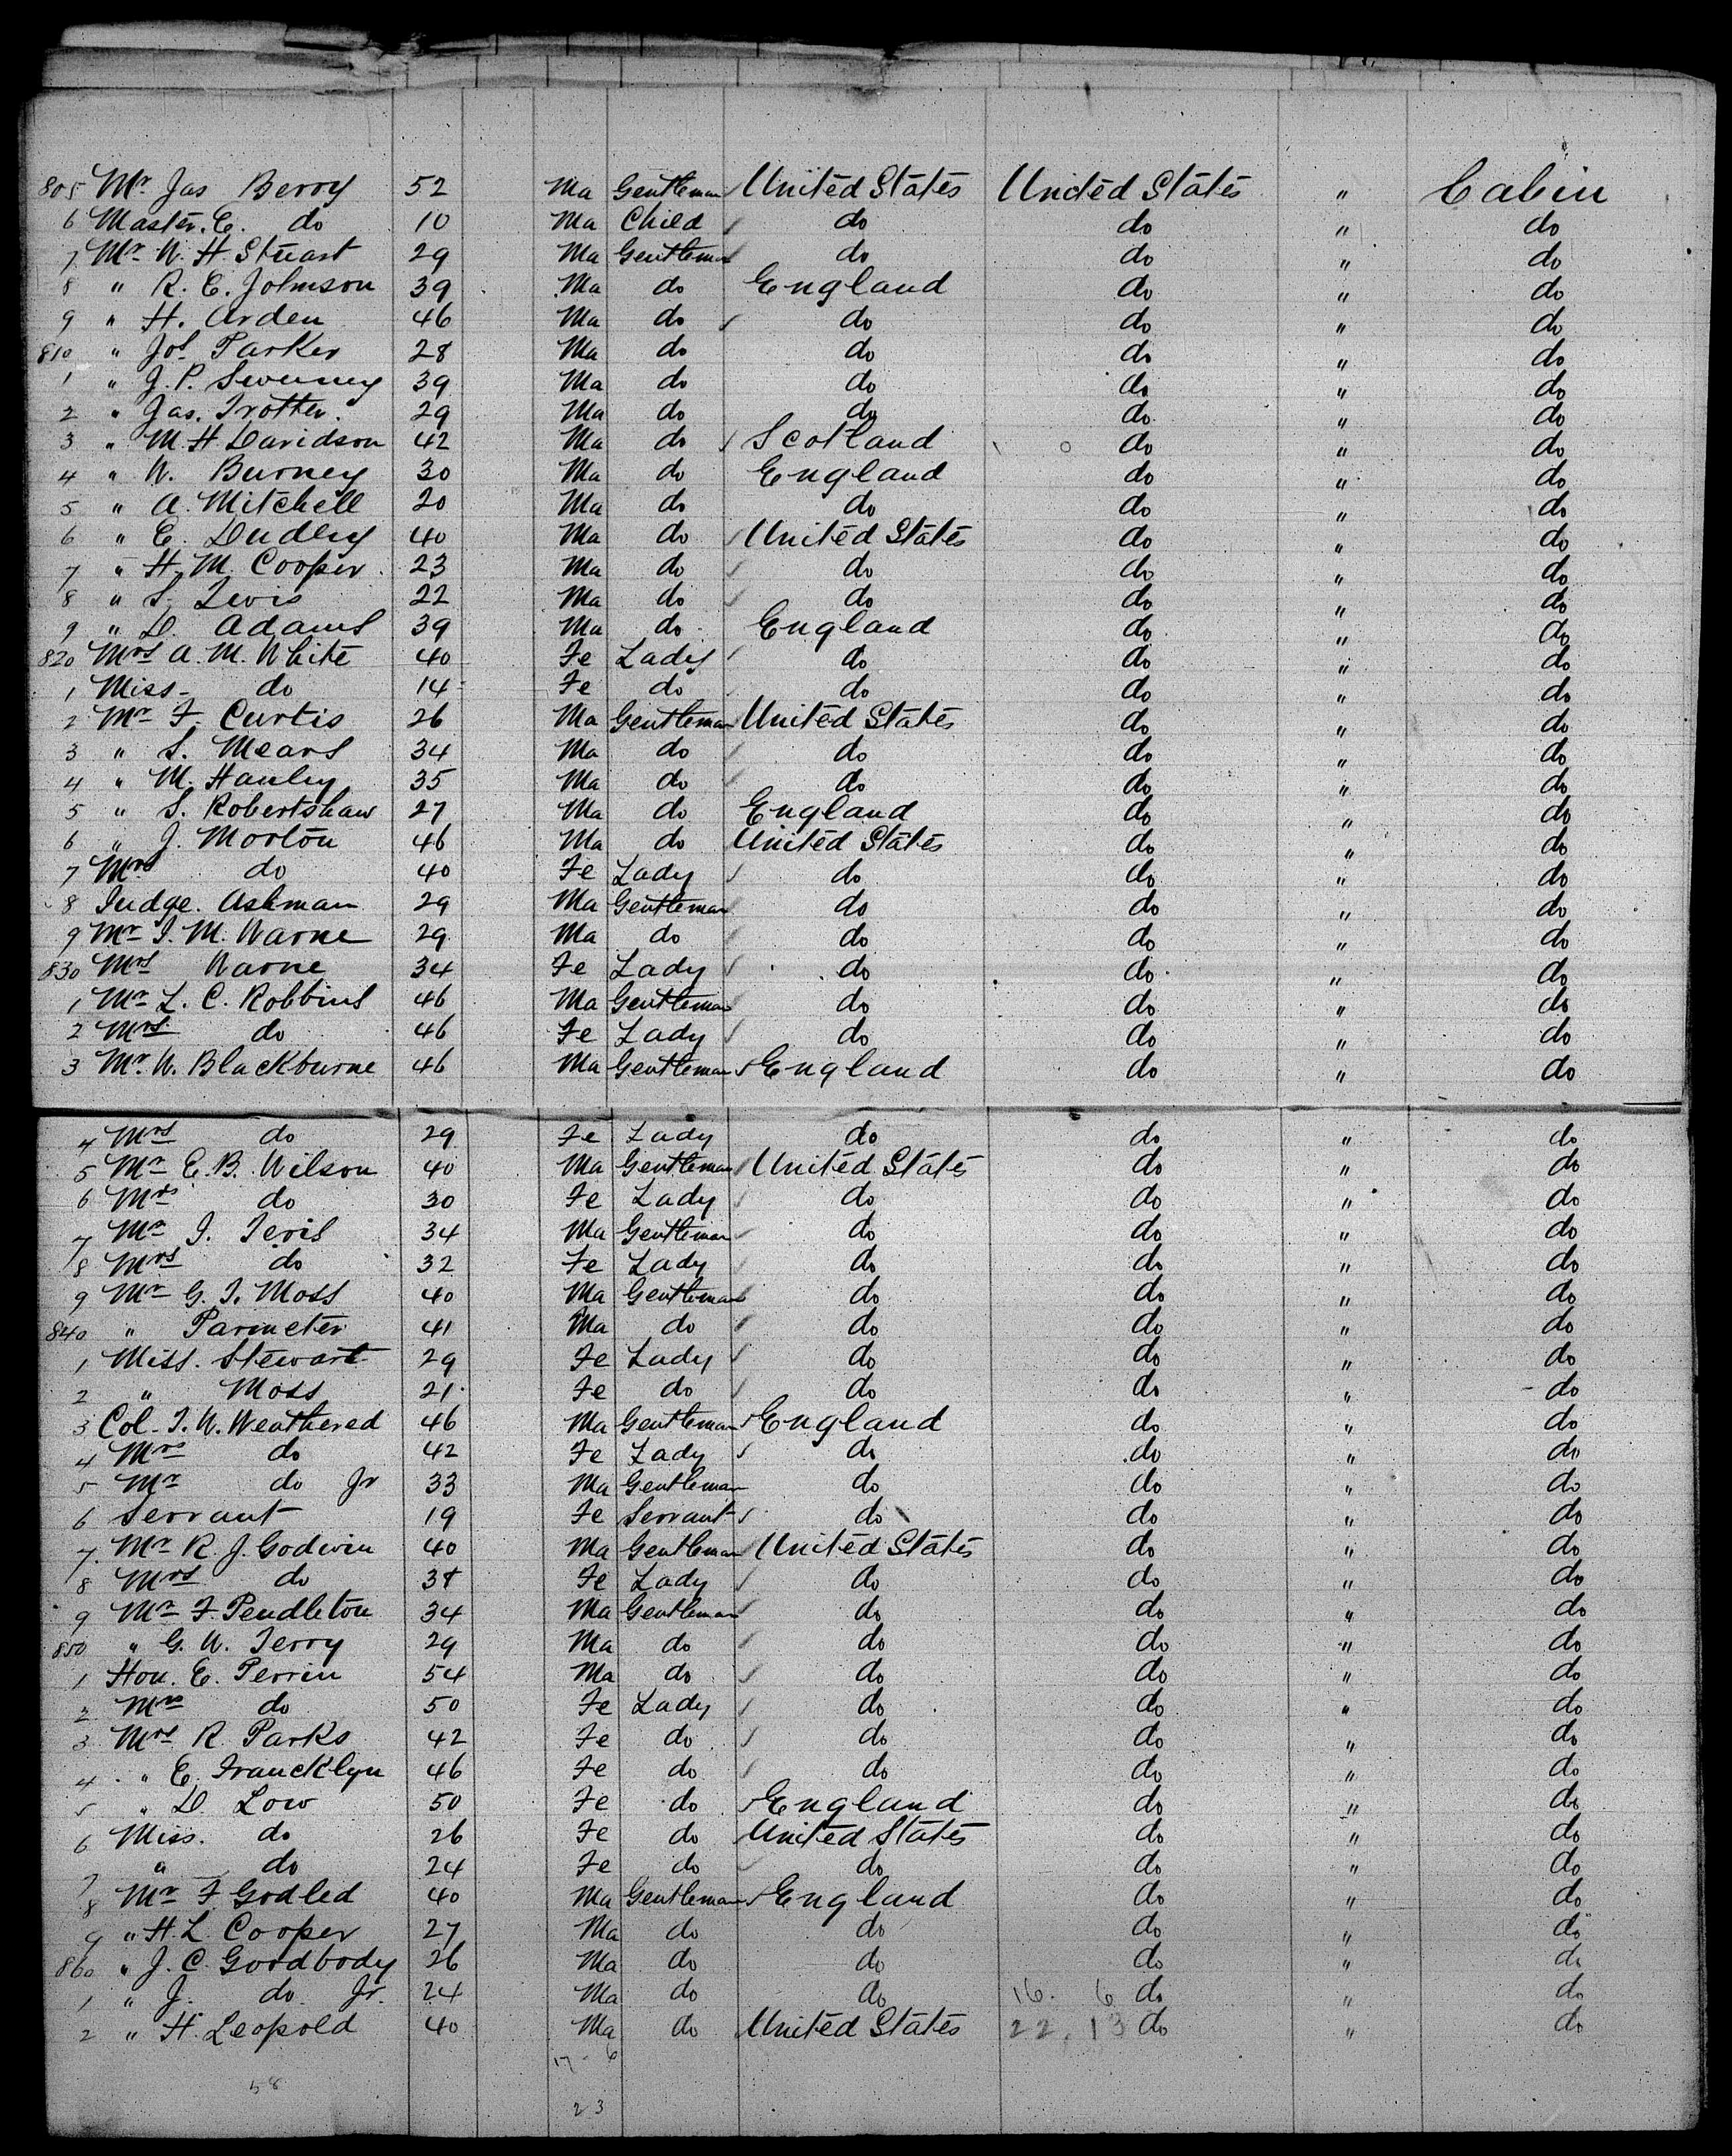 805 Mr Jas Berry 52 Ma Gentleman United States United States " Cabin
6 Master. E. do 10 Ma Child do do " do
7 Mr W. H. Stuart 29 Ma Gentleman do do " do
8 " R. E. Johnson 39 Ma do England do " do
9 " H. Arden 46 Ma do do do " do
810 " Jos Parker 28 Ma do do do " do
1 " J. P. Sweeney 39 Ma do do do " do
2 " Jas. Trotter. 29 Ma do do do " do
3 " M. H Davidson 42 Ma do Scotland do " do
4 " W. Burney 30 Ma do England do " do
5 " A. Mitchell 20 Ma do do do " do
6 " E. Dudley 40 Ma do United States do " do
7 " H. M. Cooper 23 Ma do do do " do
8 " S. 22 Ma do do do " do
9 " D. Adams 39 Ma do England do " do
820 Mrs A. M. White 40 Fe Lady do do " do
1 Miss do 14 Fe do do do " do
2 Mr F. Curtis 26 Ma Gentleman United States do " do
3 " S. Mears 34 Ma do do do " do
4 " M. Hanley 35 Ma do do do " do
5 " S. Robertshaw 27 Ma do England do " do
6 " J. Morton 46 Ma do United States do " do
7 Mrs do 40 Fe Lady do do " do
8 Judge. Ashman 29 Ma Gentleman do do " do
9 Mr I. M. Warne 29 Ma do do do " do
830 Mrs Warne 34 Fe Lady do do " do
1 Mr L. C. Robbins 46 Ma Gentleman do do " do
2 Mrs do 46 Fe Lady do do " do
3 Mr. W. Blackburne 46 Ma Gentleman England do " do
4 Mrs do 29 Fe Lady do do " do
5 Mr E. B. Wilson 40 Ma Gentleman United States do " do
6 Mrs do 30 Fe Lady do do " do
7 Mr J. Tevis 34 Ma Gentleman do do " do
8 Mrs do 32 Fe Lady do do " do
9 Mr G. T. Moss 40 Ma Gentleman do do " do
840 " Parmeter 41 Ma do do do " do
1 Miss. Stewart 29 Fe Lady do do " do
2 " Moss 21 Fe do do do " do
3 Col. T. W. Weathered 46 Ma Gentleman England do " do
4 Mrs do 42 Fe Lady do do " do
5 Mr do Jr 33 Ma Gentleman do do " do
6 Servant 19 Fe Servant do do " do
7 Mr R. J. Godwin 40 Ma Gentleman United States do " do
8 Mrs do Fe Lady do do " do
9 Mr F. Pendleton 34 Ma Gentleman do do " do
850 " G. W. Terry 29 Ma do do do " do
1 Hon. E. Perrin 54 Ma do do do " do
2 Mrs do 50 Fe Lady do do " do
3 Mrs R Parks 42 Fe do do do " do
4 " E. Francklyn 46 Fe do do do " do
5 " D. Low 50 Fe do England do " do
6 Miss. do 26 Fe do United States do " do
7 " do 24 Fe do do do " do
8 Mr F Godled 40 Ma Gentleman England do " do
9 " H. L. Cooper 27 Ma do do do " do
860 " J. C. Goodbody 26 Ma do do do " do
1 " J. do Jr. 24 Ma do do 16. 6 do " do
2 " H. Leopold 40 Ma do United States 22, 13 do " do
17 - 6
58
23